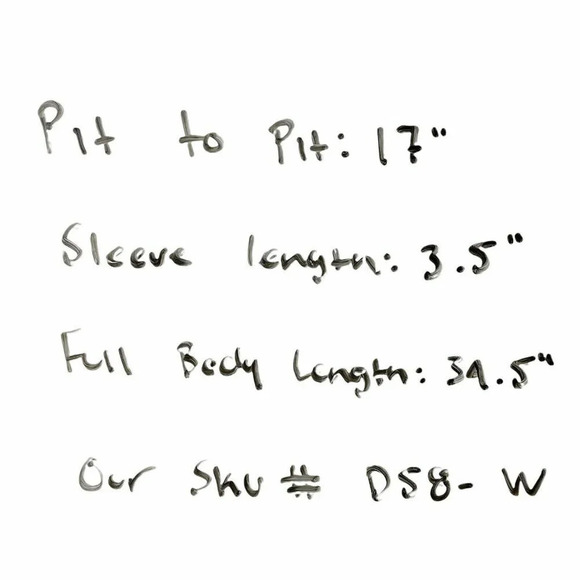 Pit to Pit: 17"
Sleeve length: 3.5"
Full Body Length: 39.5"
Our Sku # DS8-W